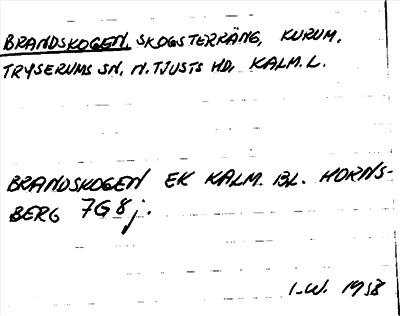 BRANDSKOGEN, SKOGSTERRÄNG, KURUM,
TRYSERUMS SN, N. TJUSTS HD, KALM. L.
BRANDSKOGEN EK KALM. BL. HORNS-
BERG 7G 8j.
I-W. 1958